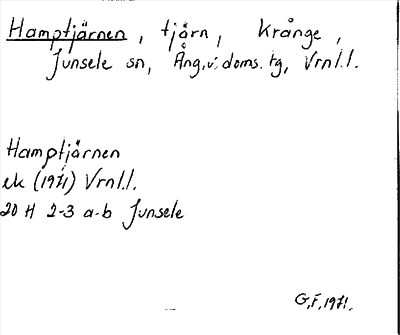 Hamptjärnen, tjärn, Krånge,
Junsele sn, Ång.v. doms. tg, Vrnl.l.
Hamptjärnen
ek (1971) Vrnl.l.
20 H 2-3 a-b Junsele
G.F. 1971.